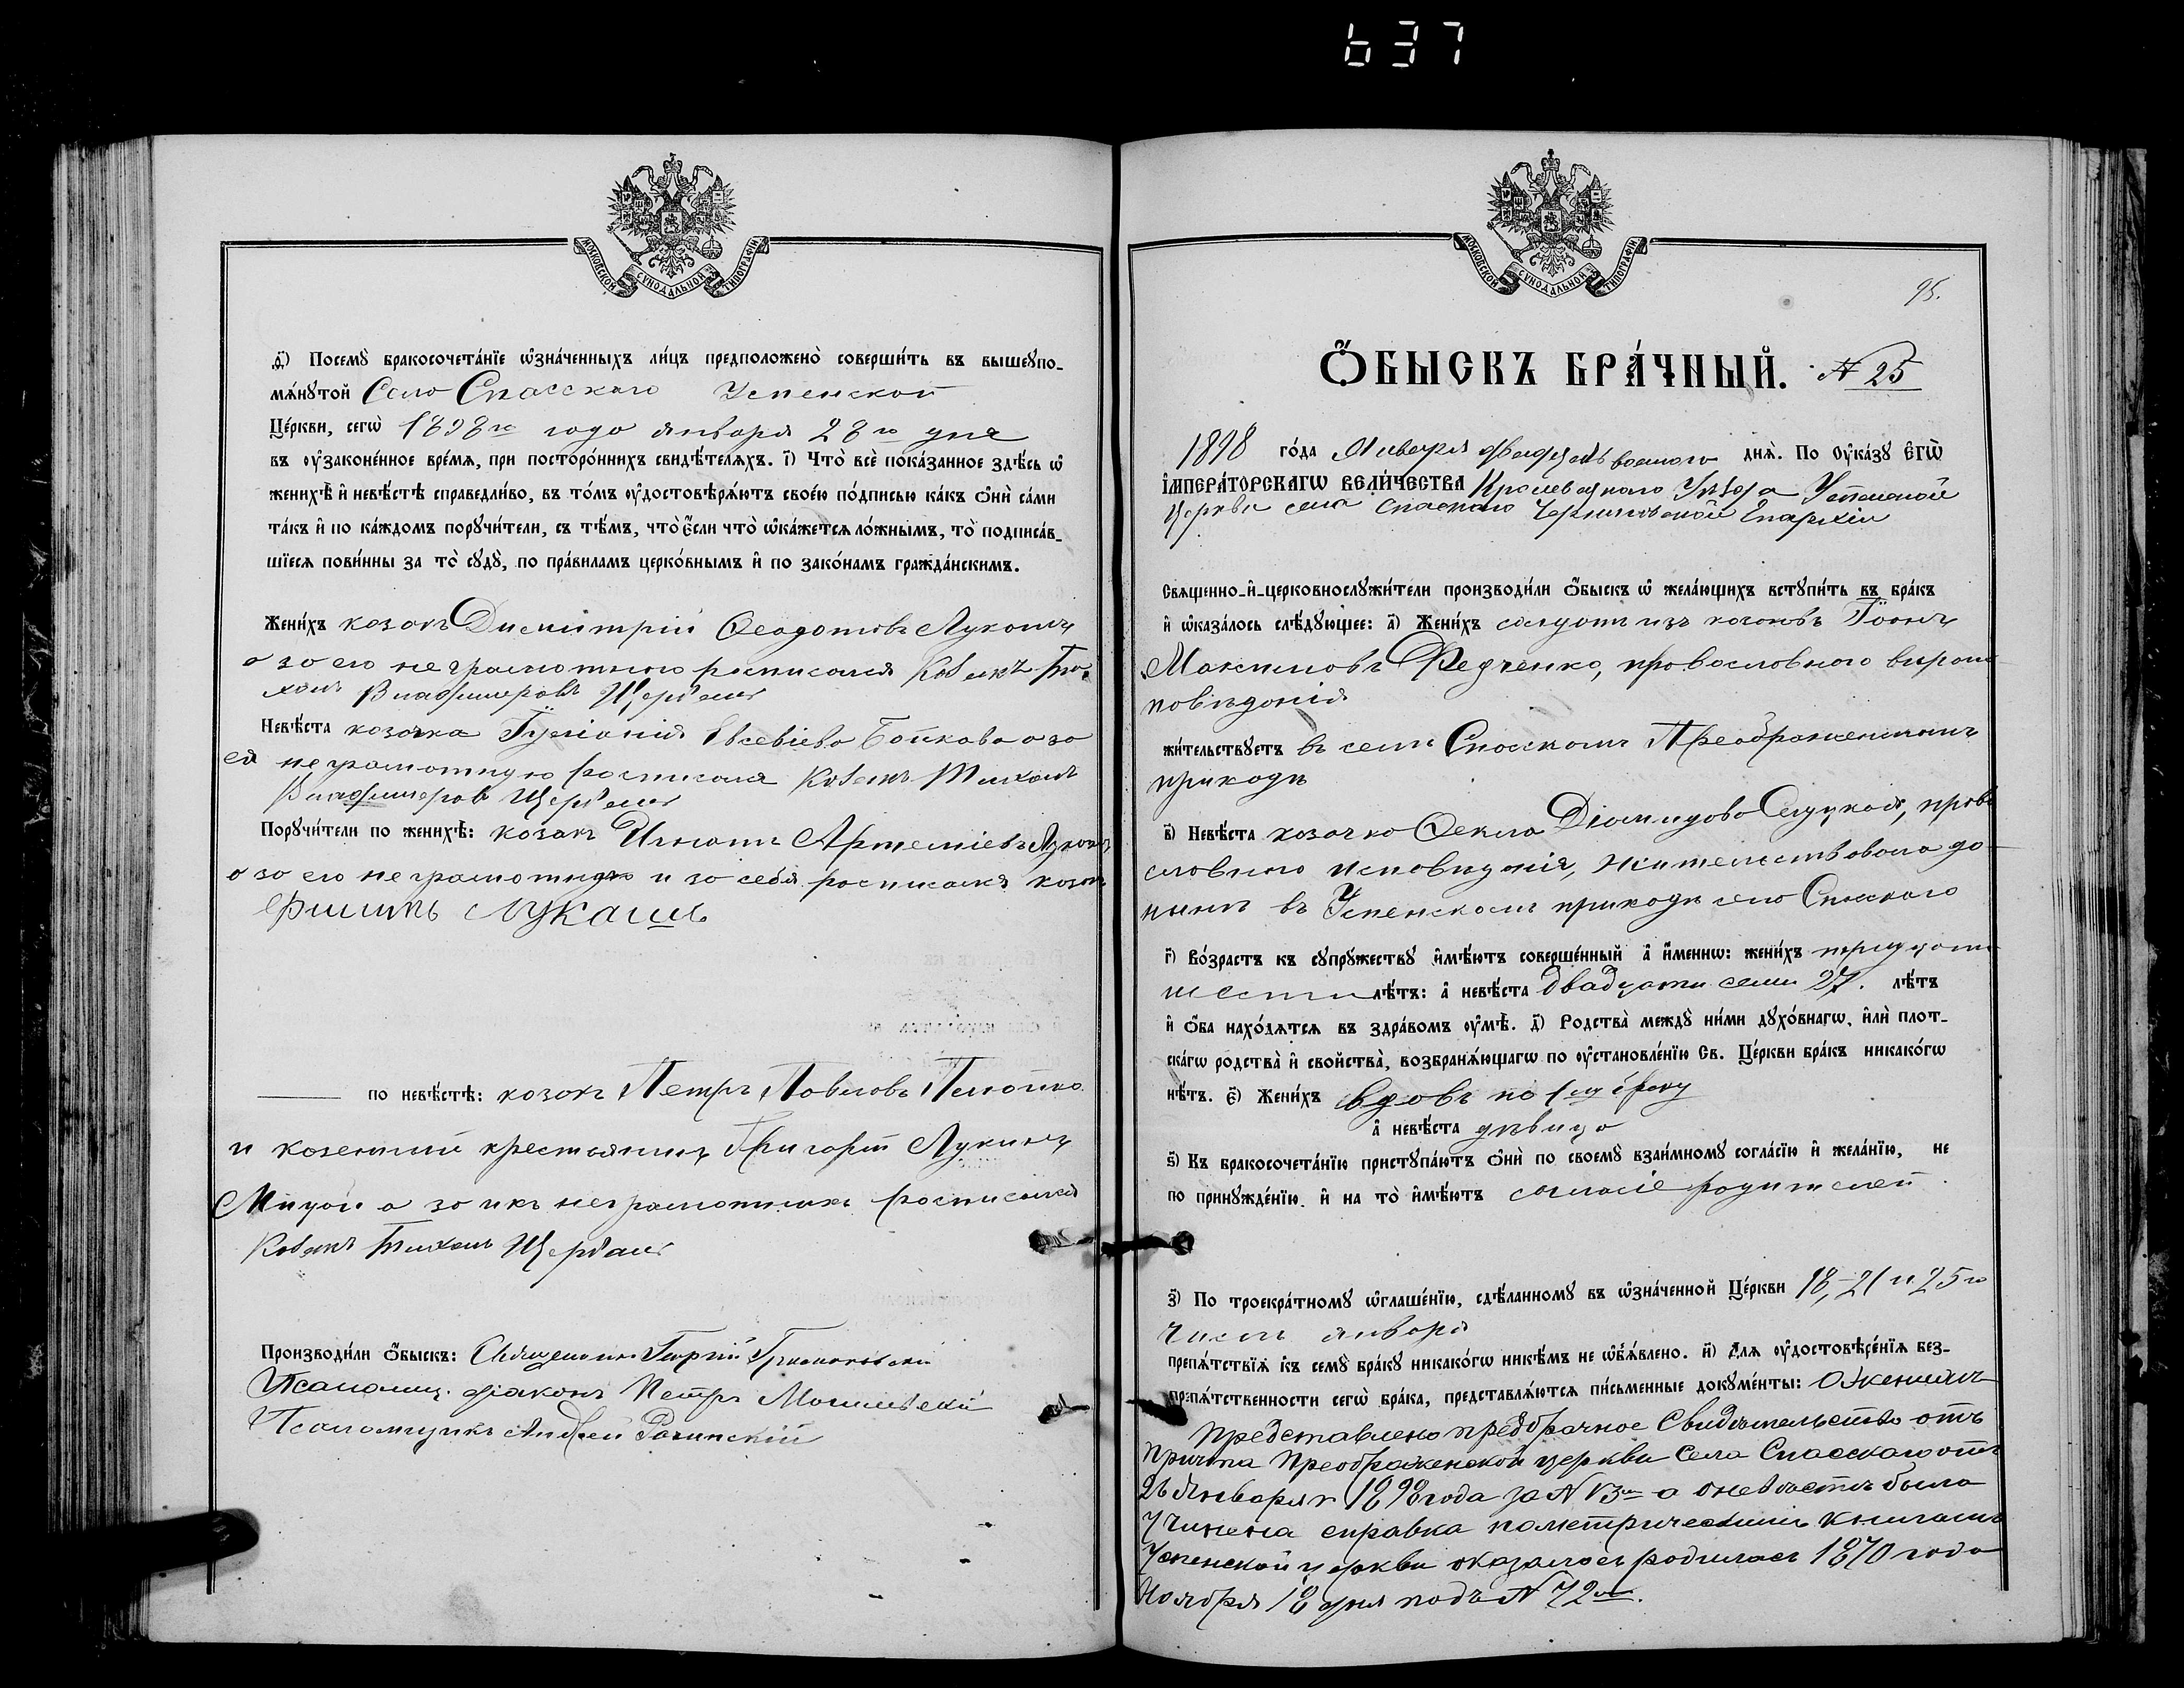 637
МОСКОВСКОЙ СУНОДАЛЬНОЙ ТИПОГРАФІИ
д҃і) Посемꙋ̀ бракосочета́нїе ѡ҆зна́ченныхъ ли́цъ предположенò соверши́ть въ вышеꙋпо-
мѧ́нꙋтой Село Спасскаго Успенской
Це́ркви, сегѡ̀ 1898го года января 28го дня
въ ᲂу҆законе́нное вре́мѧ, при посторо́ннихъ свидѣ́телѧхъ. і҃) Чтò всѐ пока́занное здѣ́сь ѡ҆
женихѣ̀ и҆ невѣ́стѣ справедли́во, въ то́мъ ᲂу҆достовѣрѧ́ютъ свое́ю по́дписью ка́къ ѻ҆нѝ са́ми
та́къ и҆ по ка́ждомъ порꙋчи́тели, съ тѣ́мъ, что̀ є҆́сли что̀ ѡ҆ка́жетсѧ ло́жнымъ, то̀ подписа́в-
шїесѧ пови́нны за то̀ сꙋдꙋ̀, по пра́виламъ церко́внымъ и҆ по зако́намъ гражда́нскимъ.
Жени́хъ козакъ Димитрій Ѳеодотовъ Лукашъ
а за его неграмотного росписался Козакъ Ти-
хонъ Владимеровъ Щербакъ
Невѣ́ста козачка Іуліанія Евсевіева Бойкова а за
ея неграмотную росписался Козакъ Тихонъ
Владимеров Щербакъ
Порꙋчи́тели по женихѣ̀: козакъ Игнатъ Артеміевъ Лукашъ
а за его неграмотного и за себя росписался козакъ
Филипъ Лукашъ
по невѣ́стѣ: козакъ Петръ Павловъ
и козенный крестьянинъ Григорій Лукинъ
а за ихъ неграмотныхъ росписался
Козакъ Тихонъ Щербакъ
Производи́ли ѻ҆́быскъ: Священникъ
Псаломщ. діаконъ Петръ
Псаломщикъ Андрей
МОСКОВСКОЙ СУНОДАЛЬНОЙ ТИПОГРАФІИ
95.
Ѻ҆́БЫСКЪ БРА́ЧНЫЙ. № 25
1898 го́да Января двадцать восьмого днѧ̀. По Оу҆ка́зꙋ Є҆гѡ̀
І҆МПЕРА́ТОРСКАГѠ ВЕЛИ́ЧЕСТВА Кролевецкаго Уѣзда Успенской
церкви села Спаскаго Черниговской Епархіи
Свѧщенно-и҆-церковнослꙋжи́тели производи́ли ѻ҆́быскъ ѡ҆ жела́ющихъ встꙋпи́ть въ бра́къ
и҆ ѡ҆каза́лось слѣ́дꙋющее: а҃) Жени́хъ солдатъ изъ козаковъ Іоанъ
Максимовъ Федченко, православного вероис-
поведонія
жи́тельствꙋетъ въ селѣ Спасскомъ Преображенскимъ
приходѣ
в҃) Невѣ́ста козачка Ѳекла Діомидова Слуцкая, право
словного исповѣданія, жительствовала до-
нынѣ въ Успенскомъ приходѣ село Спасского
г҃) Во́зрастъ къ сꙋпрꙋ́жествꙋ и҆мѣ́ютъ соверше́нный а҆ и҆́меннѡ: жени́хъ тридцати
шести лѣ́тъ: а҆ невѣ́ста двадцати семи 27. лѣ́тъ
и҆ ѻ҆́ба нахо́дѧтсѧ въ здра́вомъ ᲂу҆мѣ̀. д҃) Родства̀ междꙋ̀ ни́ми дꙋхо́внагѡ, и҆лѝ плот-
ска́гѡ родства̀ и҆ свойства̀, возбранѧ́ющагѡ по ᲂу҆становле́нїю Св. Це́ркви бра́къ никако́гѡ
нѣ́тъ. є҃) Жени́хъ вдовъ по 1му браку
а҆ невѣ́ста дѣвица
ѕ҃) Къ бракосочета́нїю пристꙋпа́ютъ ѻ҆нѝ по своемꙋ̀ взаи́мномꙋ согла́сїю и҆ жела́нїю, не
по принꙋжде́нїю. и҆ на то̀ и҆мѣ́ютъ согласіе родителей
з҃) По троекра́тномꙋ ѡ҆глаше́нїю, сдѣ́ланномꙋ въ ѡ҆зна́ченной Це́ркви 18, 21 и 25го
числъ января
препѧ́тствїѧ къ семꙋ̀ бра́кꙋ никако́гѡ никѣ́мъ не ѡ҆б̾ѧ́влено. и҃) Длѧ ᲂу҆достовѣре́нїѧ без-
препѧ́тственности сегѡ̀ бра́ка, представлѧ́ютсѧ пи́сьменные докꙋме́нты: О женихѣ
представлено предбрачное Свидѣтельство отъ
причта Преображенской церкви Села Спасскаго отъ
26 Января 1898 года за № 13м а о невѣстѣ была
Учинена справка пометрическимъ книгамъ
Успенской церкви оказалось родилась 1870 года
Ноября 18 дня подъ № 72м.